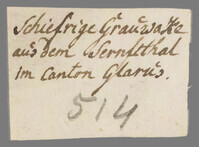 Schiefrige Grauwakke
aus dem Sernftthal
im Canton Glarus.
514